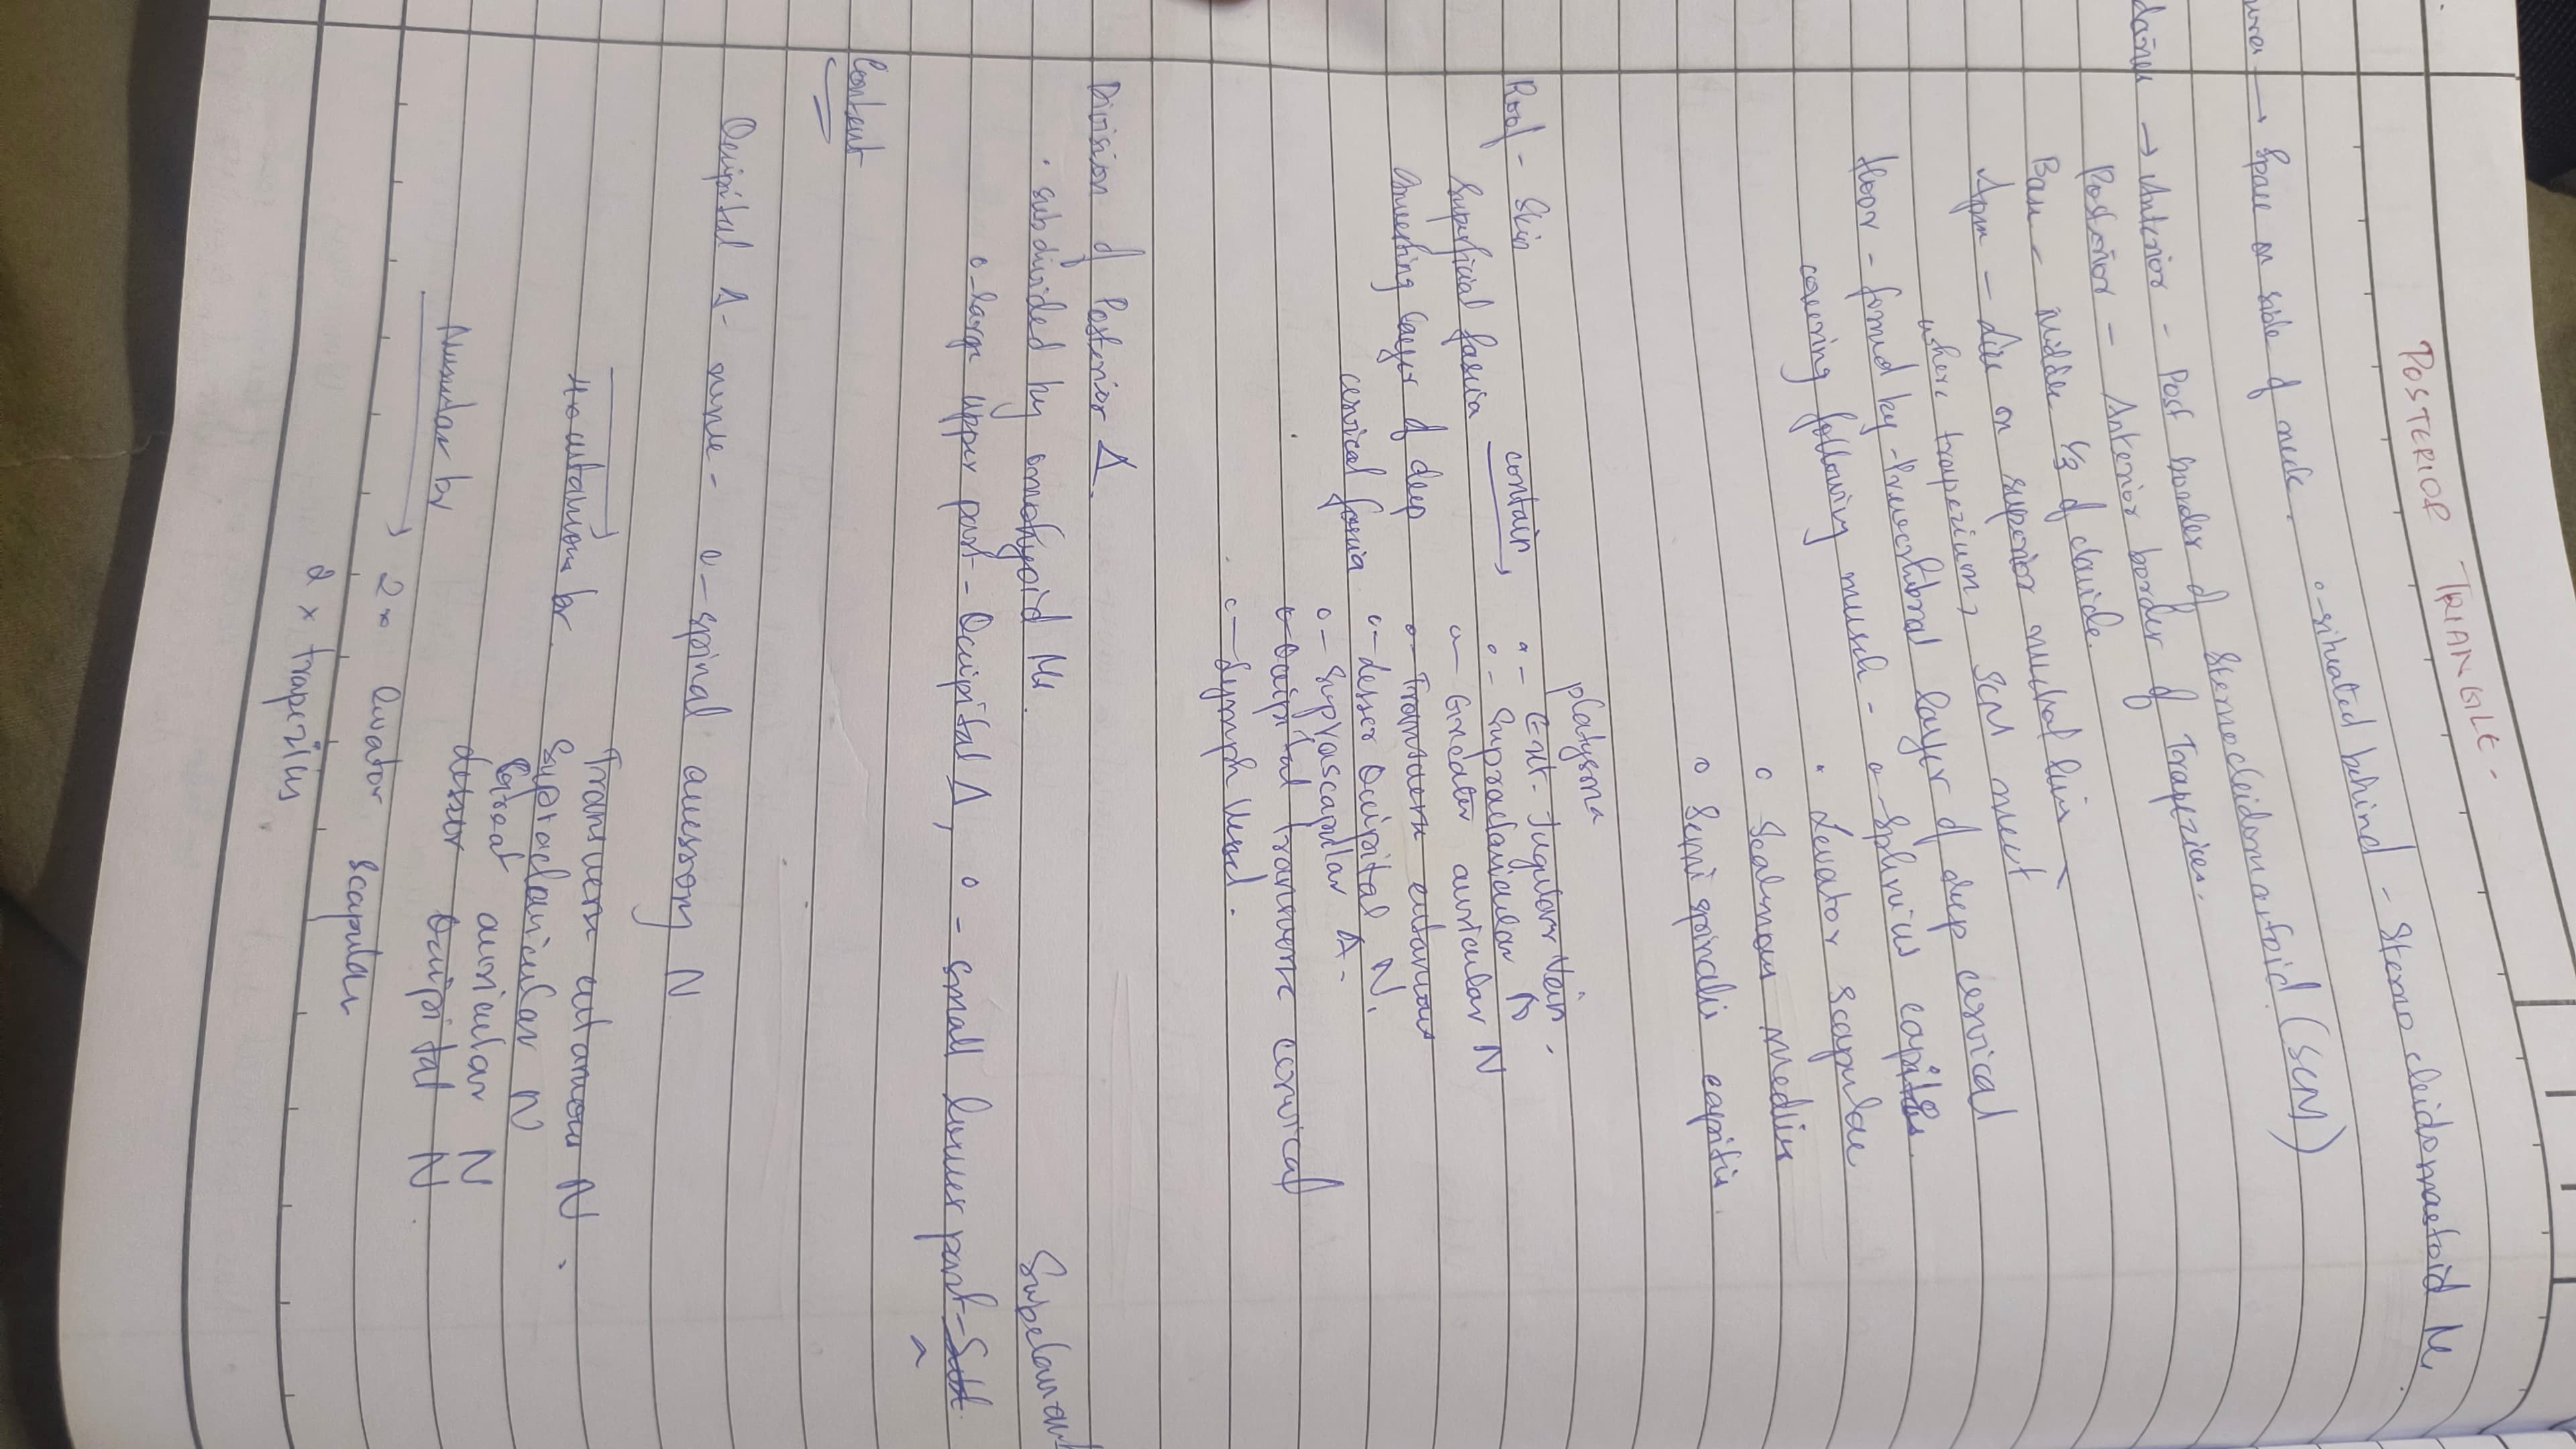 POSTERIOR TRIANGLE -
→ Space on side of neck. o-situated behind - Sterno cleidomastoid M.
→ Anterior - Post border of Sternocleidomastoid (SCM)
Posterior - Anterior border of Trapezius.
Base - middle 1/3 of clavicle.
Apex - lie on superior nuchal line
where trapezium, SCM meet
floor - formed by - Prevertebral layer of deep cervical
covering following muscle - o - Splenius capitis.
• Levator Scapulae
o Scalenous Medius
o Semispinalis capitis
Roof - Skin platysma
Superficial fascia contain, o - Ext. Jugular Vein.
o - Supraclavicular N
Investing layer of deep o - Greater auricular N
cervical fascia o - Transverse cutaneous
o - Lesser Occipital N.
o - Suprascapular A -
o - Occipital transverse cervical
o - Lymph Vessel.
Division of Posterior Δ.
• subdivided by omohyoid Ms.
o - large upper part - Occipital Δ, o - small lower part -
Content
Occipital Δ - nerve - o - spinal accessory N
4 cutaneous br. Transverse cutaneous N.
Supraclavicular N
Great auricular N
Lesser Occipital N
Muscular br → 2 Levator Scapulae
2 x trapezius